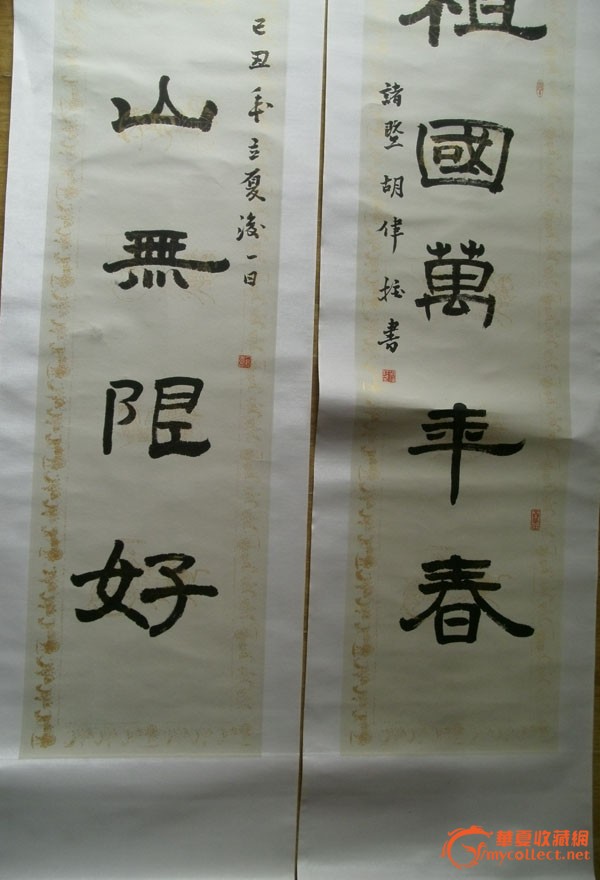 祖國萬年春
諸暨胡偉栓書
己丑年立夏後一日
山無限好
華夏收藏網
mycollect.net